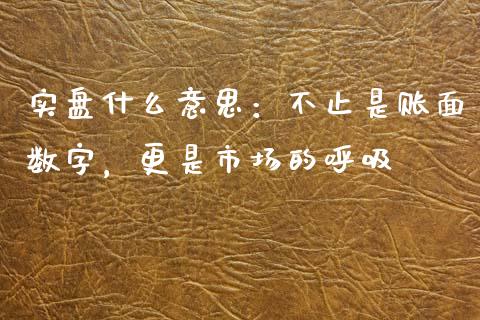 实盘什么意思：不止是账面
数字，更是市场的呼吸